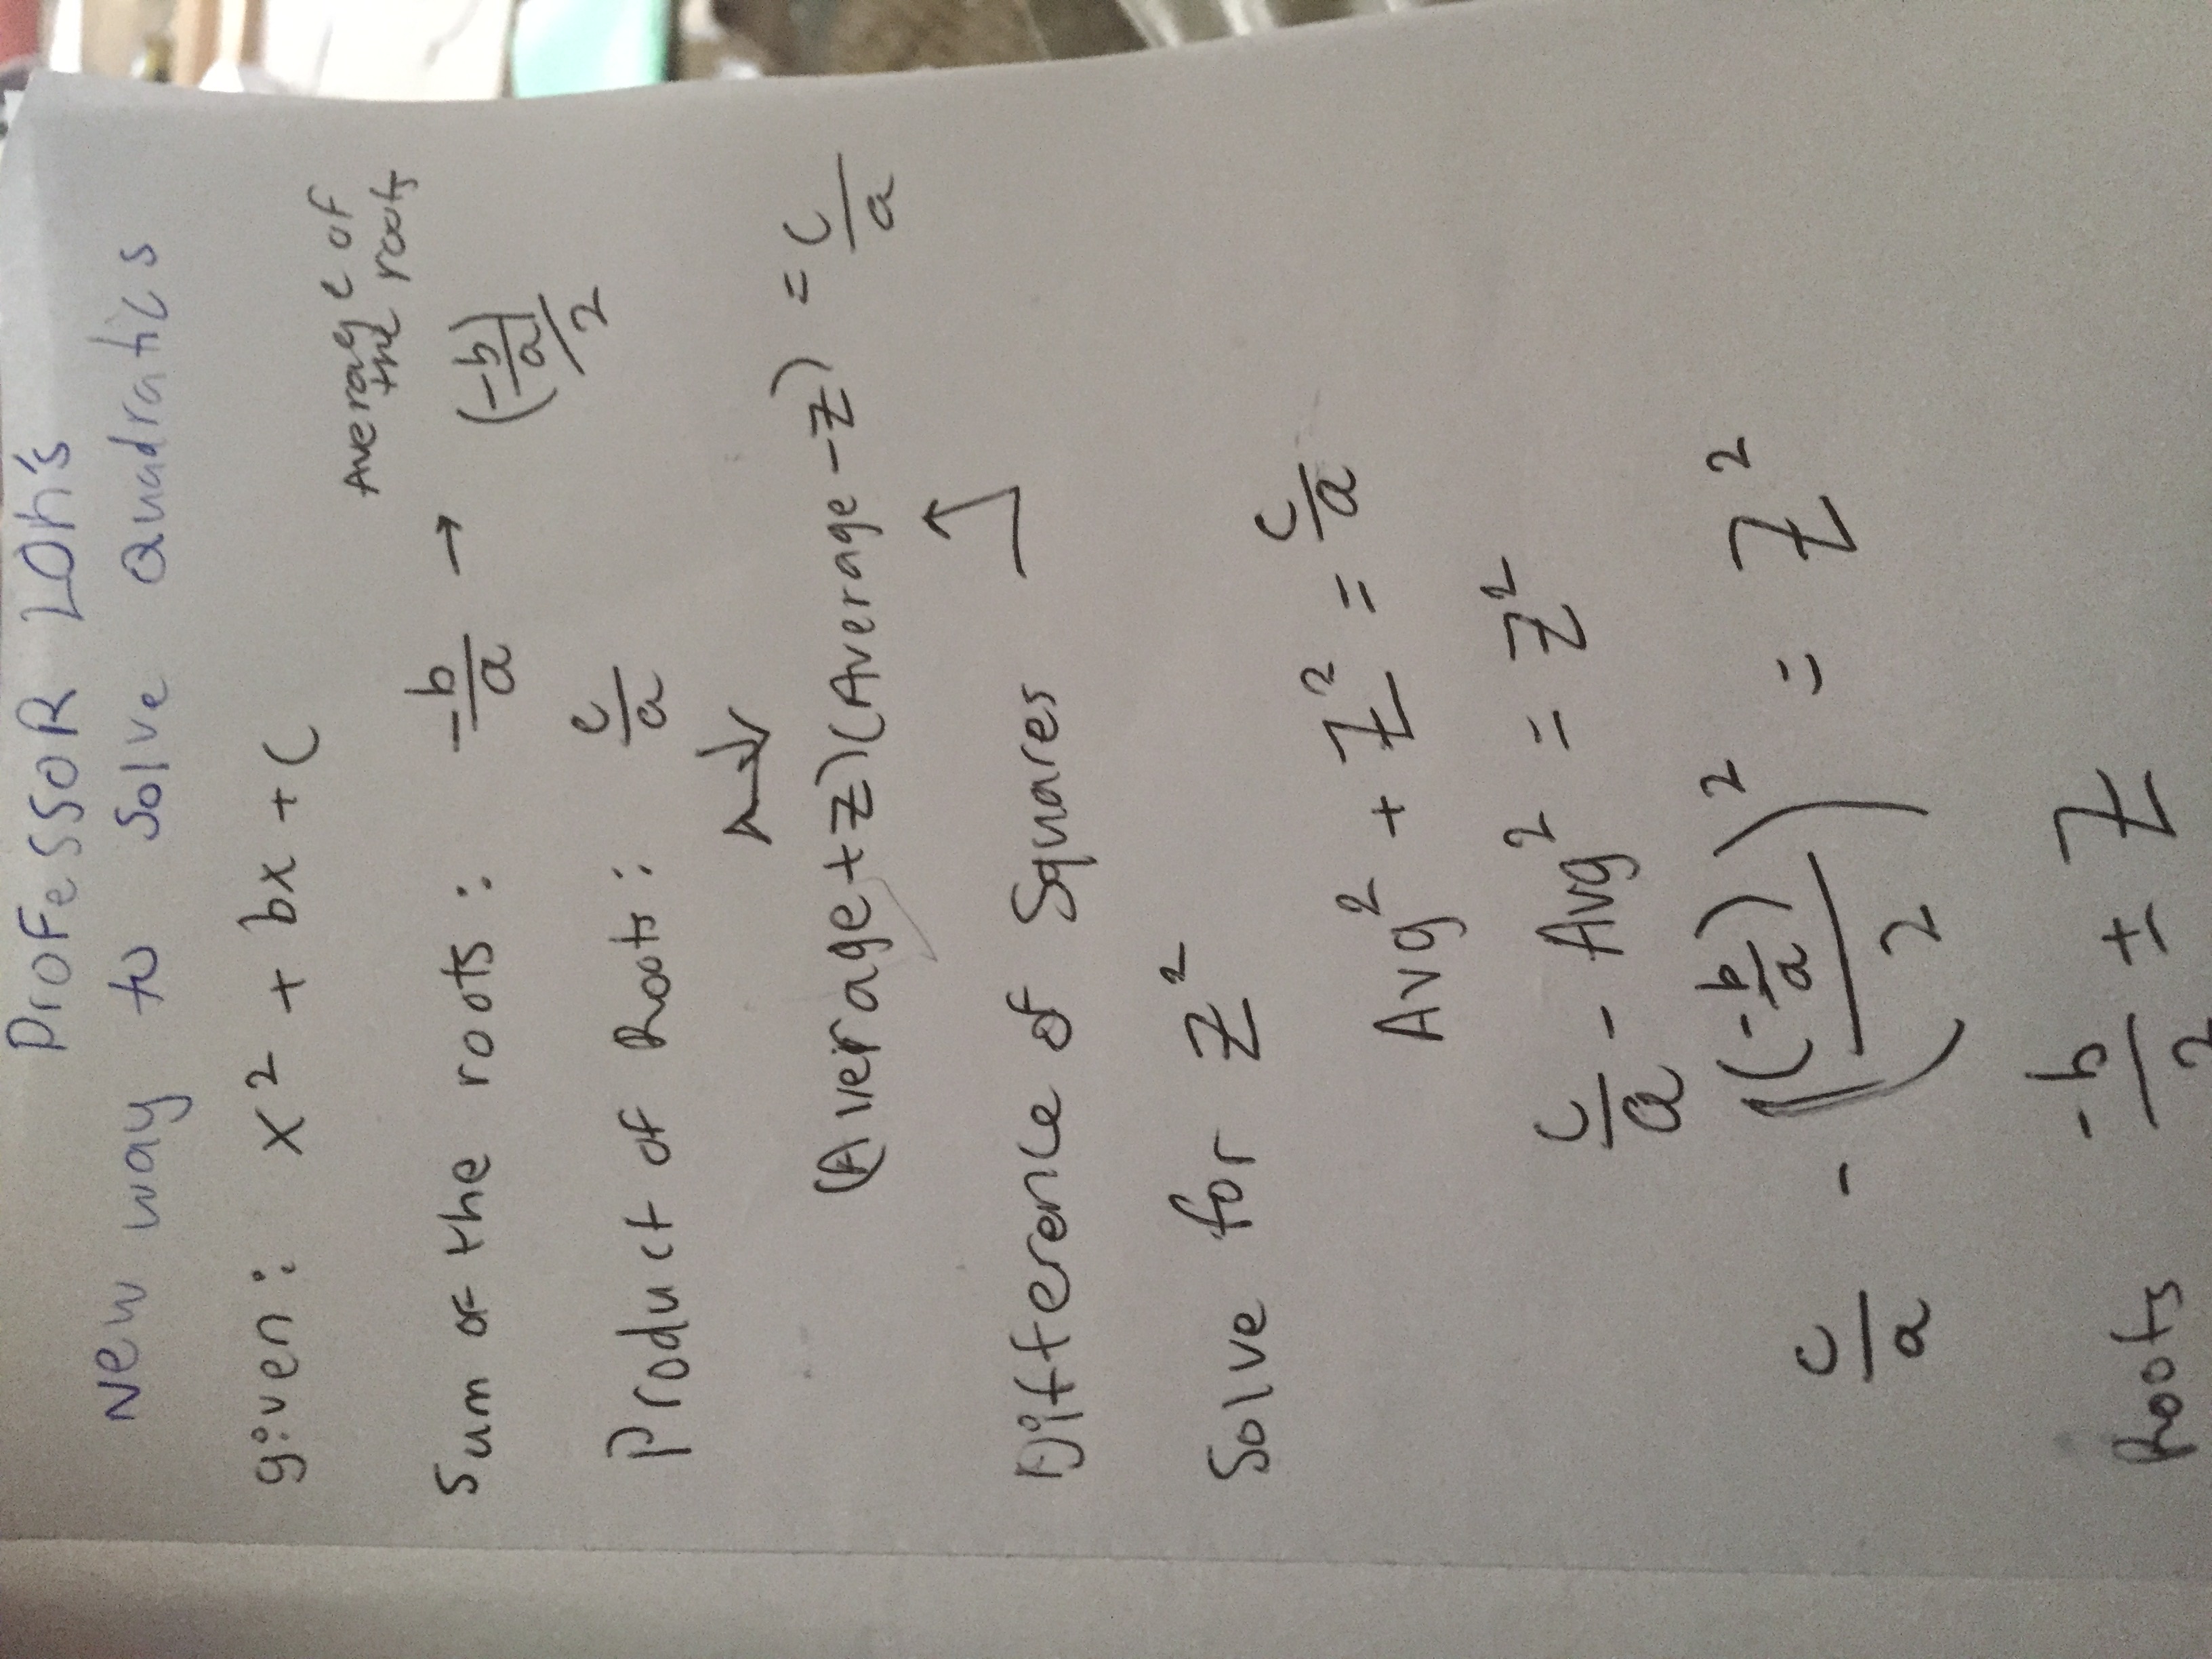 Professor Loh's
New way to Solve Quadratics
given: x² + bx + c
Average of
the roots
Sum of the roots: -b/a → (-b/a)/2
Product of Roots: c/a
(Average+z)(Average-z) = c/a
Difference of Squares
Solve for z²
Avg² + z² = c/a
c/a - Avg² = z²
c/a - ((-b/a)/2)² = z²
Roots -b/2 ± z